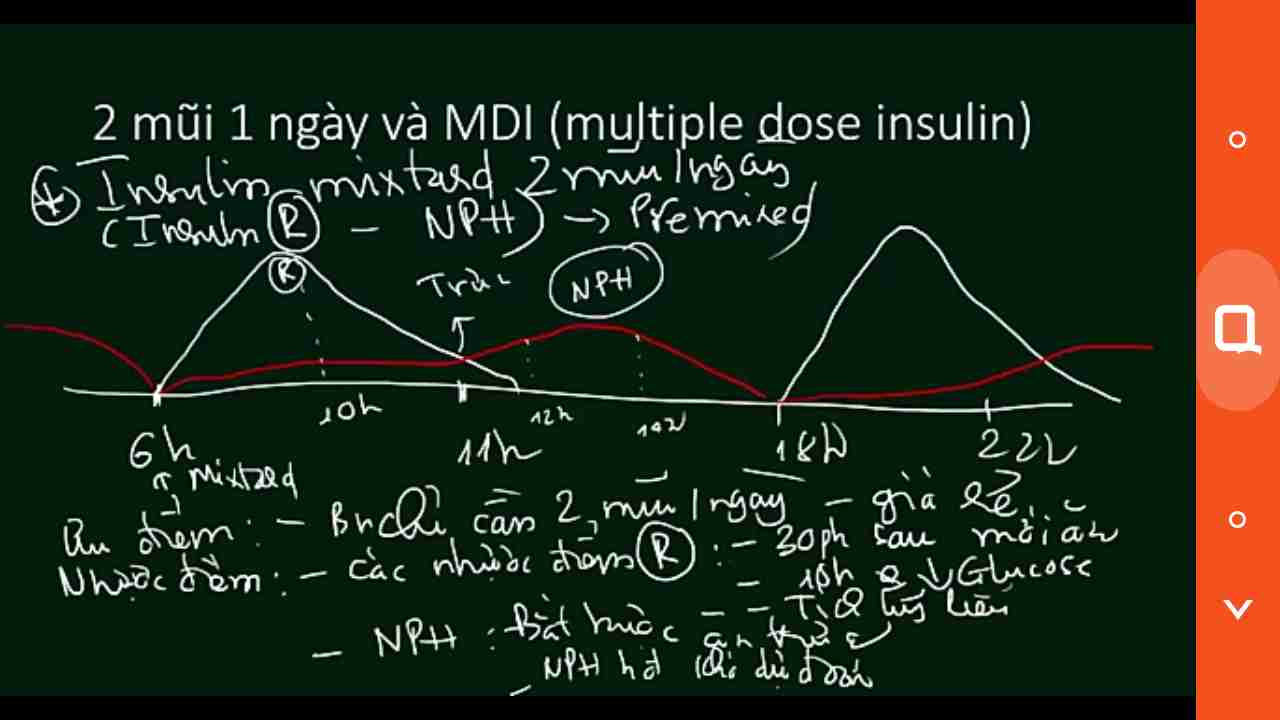 2 mũi 1 ngày và MDI (multiple dose insulin)
Insulin mixtard 2 mũi 1 ngay
(Insulin R - NPH) → Premixed
R
NPH
10h
12h
6h
11h
18h
22h
Mixtard
Ưu điểm: - Bn chỉ cần 2 mũi 1 ngay - giá rẻ
Nhược điểm: - các nhược điểm R: - 30ph sau mới ăn
- 10h ↓ Glucose
- NPH: Bắt buộc ăn
- NPH